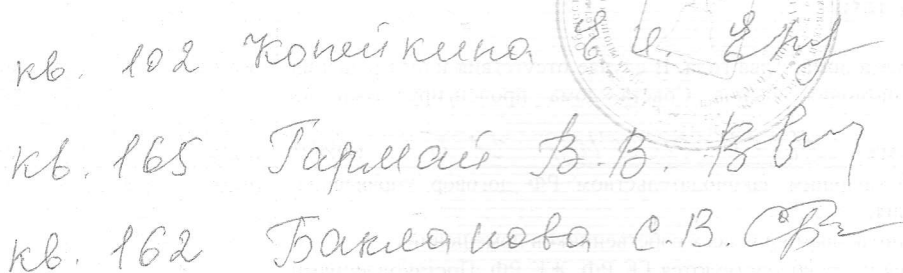 кв. 102 Копейкина Е. И.
кв. 165 Гармай В. В.
кв. 162 Бакланова С. В.